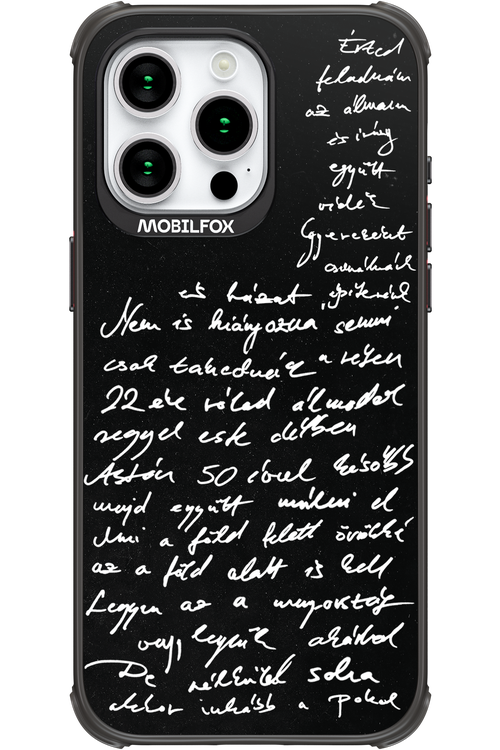 MOBILFOX
Érted
feladnám
az álmaim
és így
együtt
veled
Gyerekeket
csinálnánk
és házat építenénk
Nem is hiányozna semmi
csak takednád a rétjen
22 éve rólad álmodok
reggel este délben
Aztán 50 évvel később
majd együtt múlni el
Ami a föld felett örökké
az a föld alatt is kell
Legyen az a mennyország
vagy legyünk akárhol
De nélküled soha
akkor inkább a Pokol